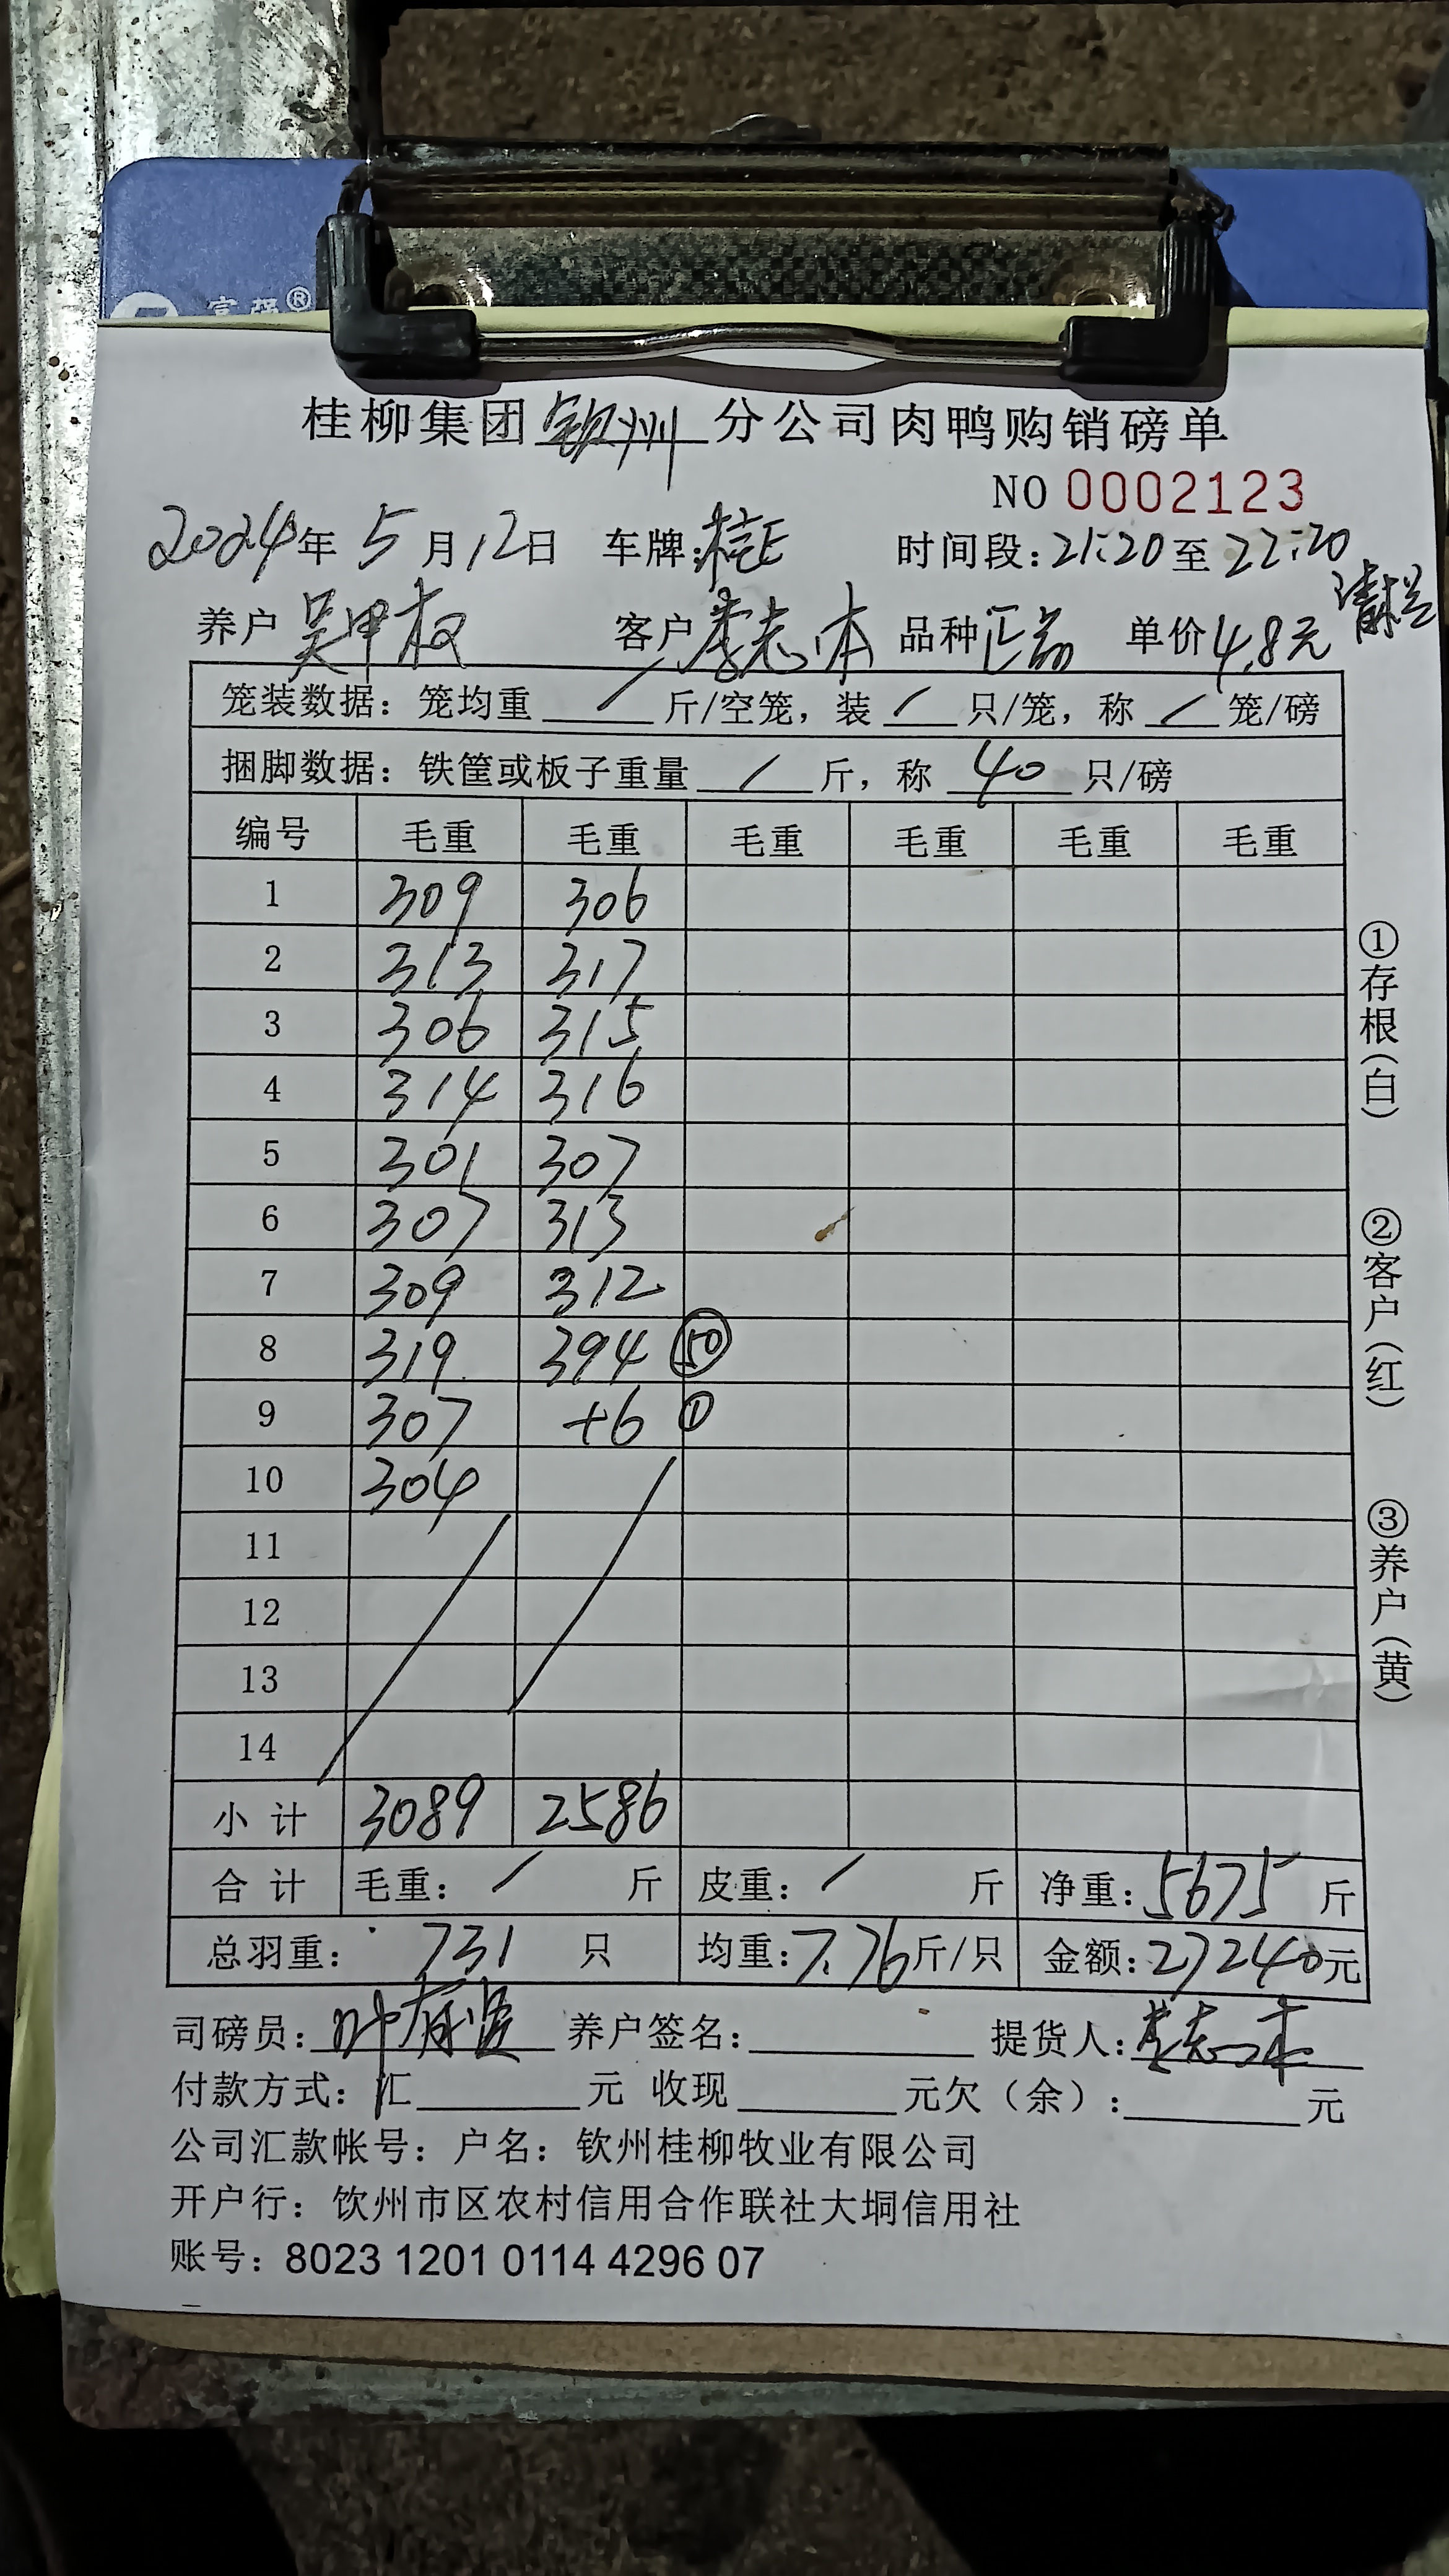 富强®
桂柳集团钦州分公司肉鸭购销磅单
NO 0002123
2024年5月12日 车牌: 时间段:21:20至22:20
养户 吴甲权 客户 李志本 品种 正品 单价 4.8元 清栏
笼装数据:笼均重 / 斤/空笼,装 / 只/笼,称 / 笼/磅
捆脚数据:铁筐或板子重量 / 斤,称 40 只/磅
编号 毛重 毛重 毛重 毛重 毛重 毛重
1 309 306
2 313 317
3 306 315
4 314 316
5 301 307
6 307 313
7 309 312
8 319 394 50
9 307 +6 ①
10 304
11
12
13
14
小计 3089 2586
合计 毛重: / 斤 皮重: / 斤 净重: 5675 斤
总羽重: 731 只 均重: 7.76斤/只 金额: 27240元
司磅员: 叶有 养户签名: 提货人: 李志本
付款方式: 汇 元 收现 元欠(余): 元
公司汇款帐号:户名:钦州桂柳牧业有限公司
开户行:钦州市区农村信用合作联社大垌信用社
账号:8023 1201 0114 4296 07
①存根(白)
②客户(红)
③养户(黄)